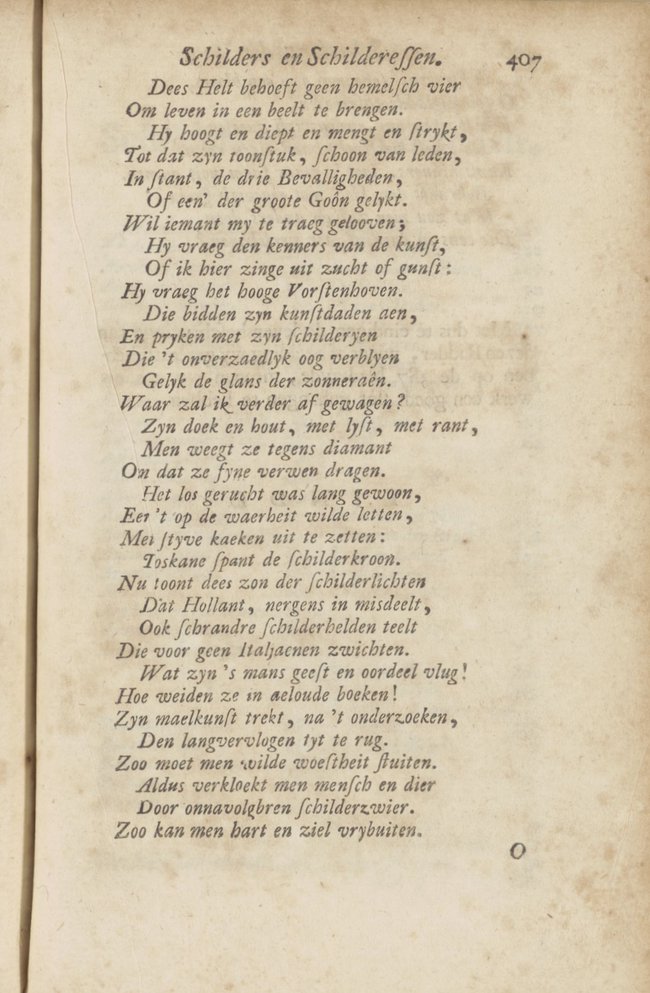 Schilders en Schilderessen. 407
Dees Helt behoeft geen hemelsch vier
Om leven in een beelt te brengen.
Hy hoogt en diept en mengt en strykt,
Tot dat zyn toonstuk, schoon van leden,
In stant, de drie Bevalligheden,
Of een' der groote Goôn gelykt.
Wil iemant my te traeg gelooven;
Hy vraeg den kenners van de kunst,
Of ik hier zinge uit zucht of gunst:
Hy vraeg het hooge Vorstenhoven.
Die bidden zyn kunstdaden aen,
En pryken met zyn schilderyen
Die 't onverzaedlyk oog verblyen
Gelyk de glans der zonneraên.
Waar zal ik verder af gewagen?
Zyn doek en hout, met lyst, met rant,
Men weegt ze tegens diamant
Om dat ze fyne verwen dragen.
Het los gerucht was lang gewoon,
Eer 't op de waerheit wilde letten,
Met styve kaeken uit te zetten:
Toskane spant de schilderkroon.
Nu toont dees zon der schilderlichten
Dat Hollant, nergens in misdeelt,
Ook schrandre schilderhelden teelt
Die voor geen Italjaenen zwichten.
Wat zyn 's mans geest en oordeel vlug!
Hoe weiden ze in aeloude boeken!
Zyn maelkunst trekt, na 't onderzoeken,
Den langvervlogen tyt te rug.
Zoo moet men wilde woestheit stuiten.
Aldus verkloekt men mensch en dier
Door onnavolgbren schilderzwier.
Zoo kan men hart en ziel vrybuiten.
O